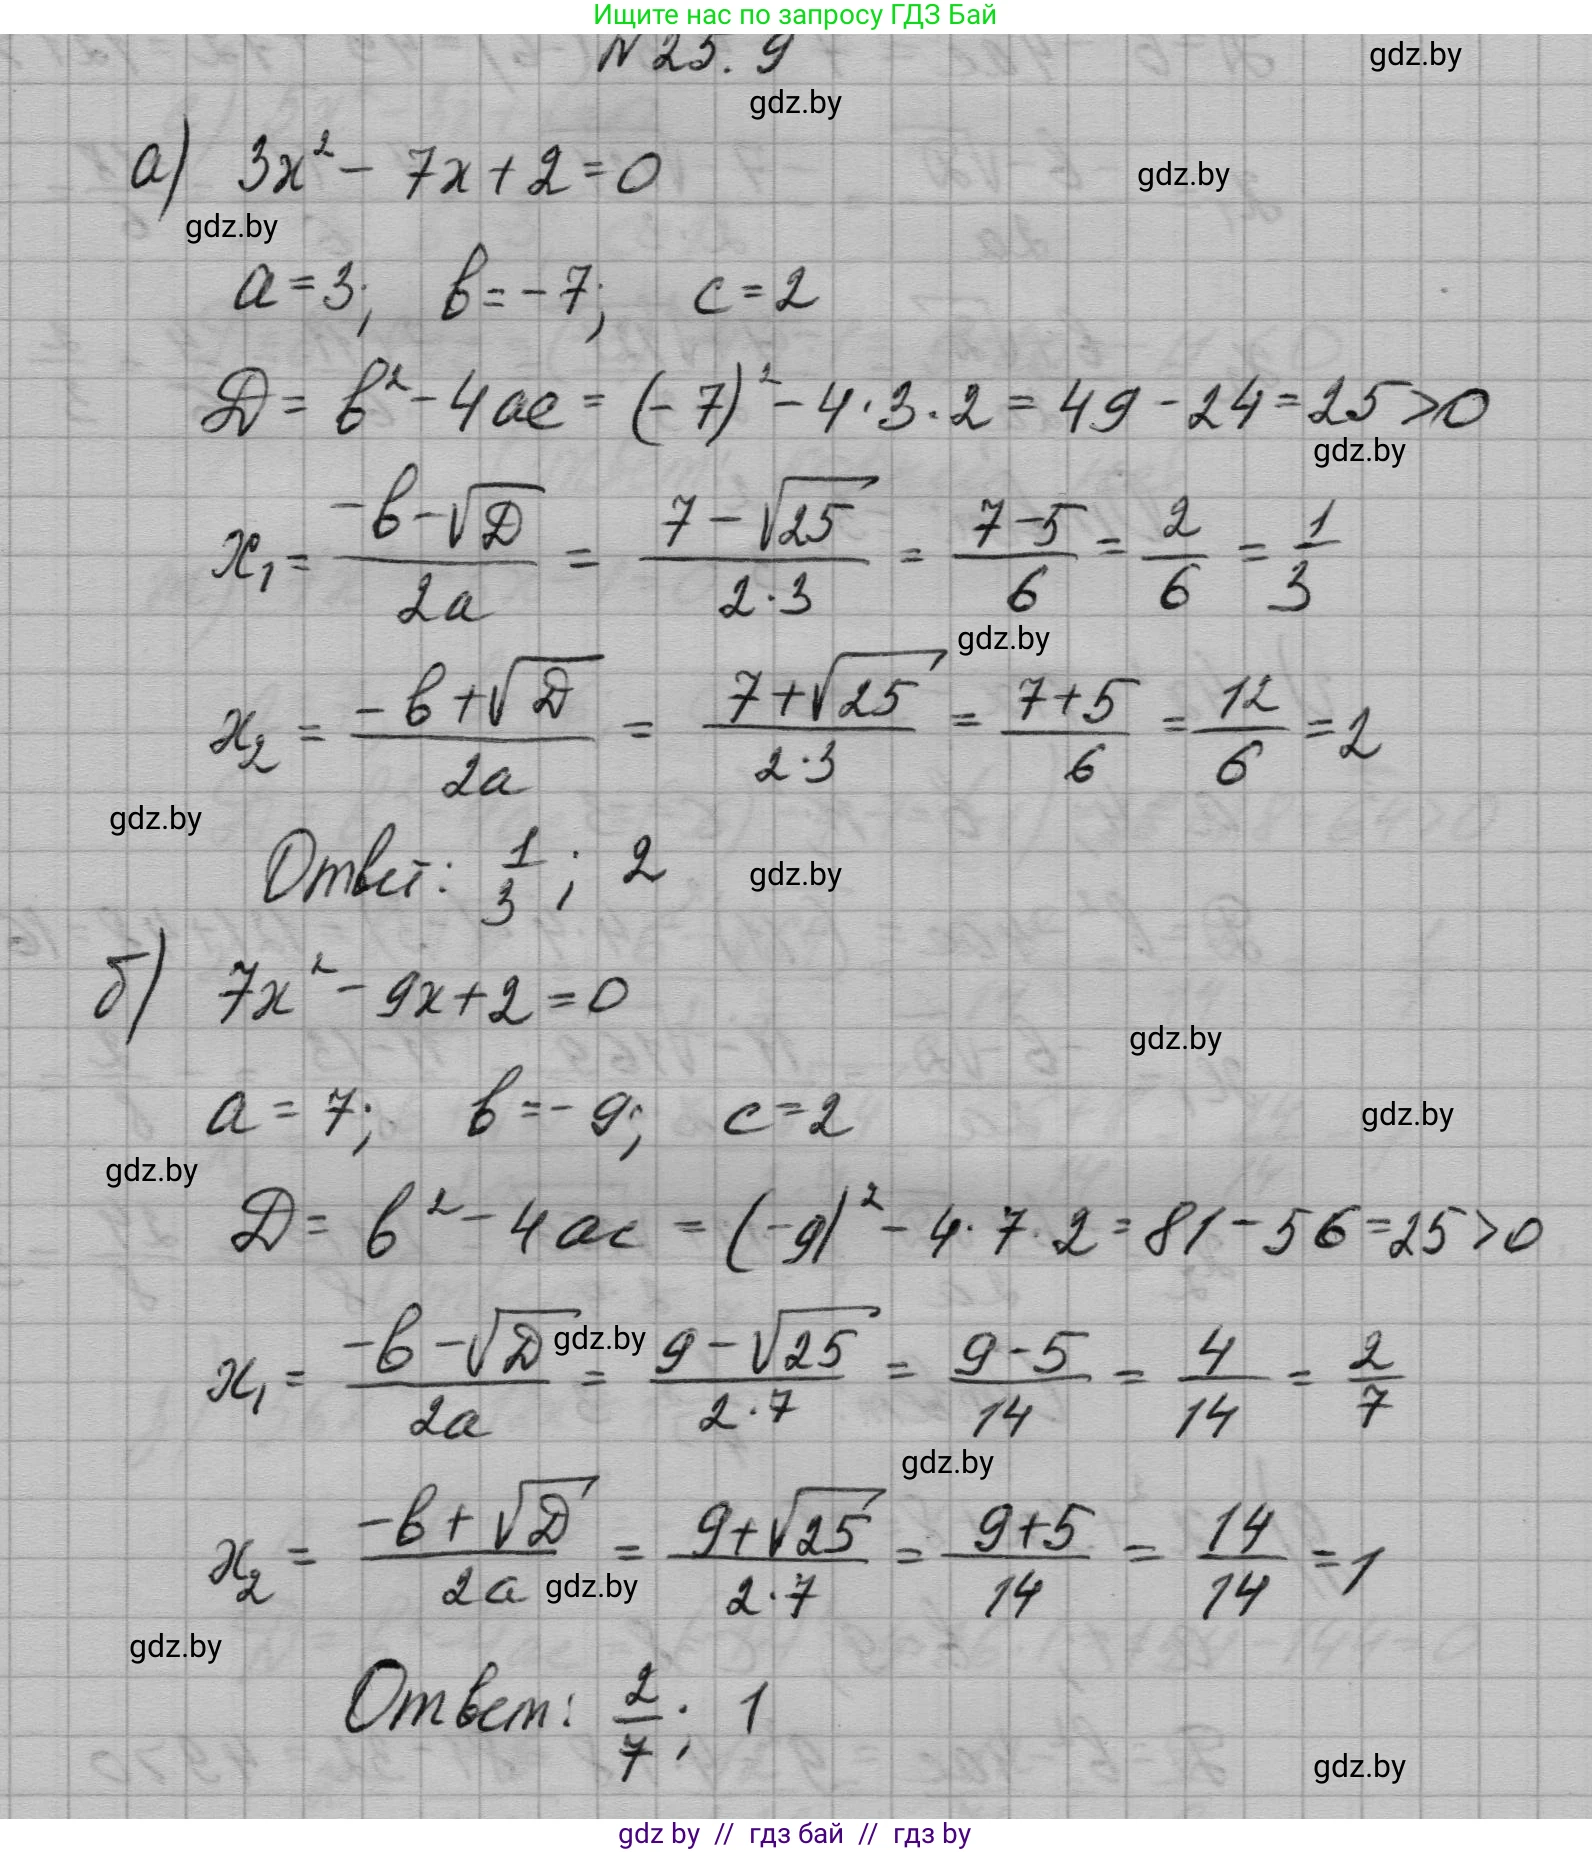 Ищите нас по запросу ГДЗ Бай
N 25.9
gdz.by
gdz.by
а) 3x² - 7x + 2 = 0
gdz.by
gdz.by
a = 3; b = -7; c = 2
D = b² - 4ac = (-7)² - 4·3·2 = 49 - 24 = 25 > 0
gdz.by
x₁ = (-b - √D)/(2a) = (7 - √25)/(2·3) = (7 - 5)/6 = 2/6 = 1/3
gdz.by
x₂ = (-b + √D)/(2a) = (7 + √25)/(2·3) = (7 + 5)/6 = 12/6 = 2
gdz.by
Ответ: 1/3; 2
gdz.by
б) 7x² - 9x + 2 = 0
gdz.by
a = 7; b = -9; c = 2
gdz.by
gdz.by
D = b² - 4ac = (-9)² - 4·7·2 = 81 - 56 = 25 > 0
x₁ = (-b - √D)/(2a) = (9 - √25)/(2·7) = (9 - 5)/14 = 4/14 = 2/7
gdz.by
gdz.by
x₂ = (-b + √D)/(2a) = (9 + √25)/(2·7) = (9 + 5)/14 = 14/14 = 1
gdz.by
gdz.by
Ответ: 2/7; 1
gdz.by
gdz by // гдз бай // гдз by